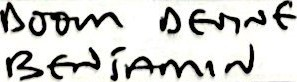 BOOM DEVINE
BENJAMIN